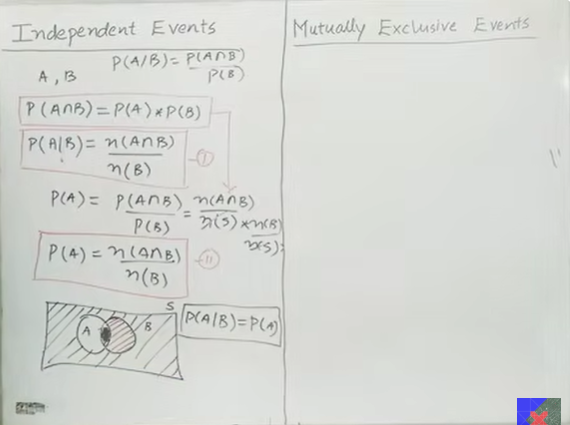 Independent Events
A, B P(A/B) = P(A∩B)
P(B)
P(A∩B) = P(A) * P(B)
P(A|B) = n(A∩B)
n(B)
I
P(A) = P(A∩B) = n(A∩B)
P(B) n(S) * n(B)
n(S)
P(A) = n(A∩B)
n(B)
II
S
A B
P(A|B) = P(A)
Mutually Exclusive Events